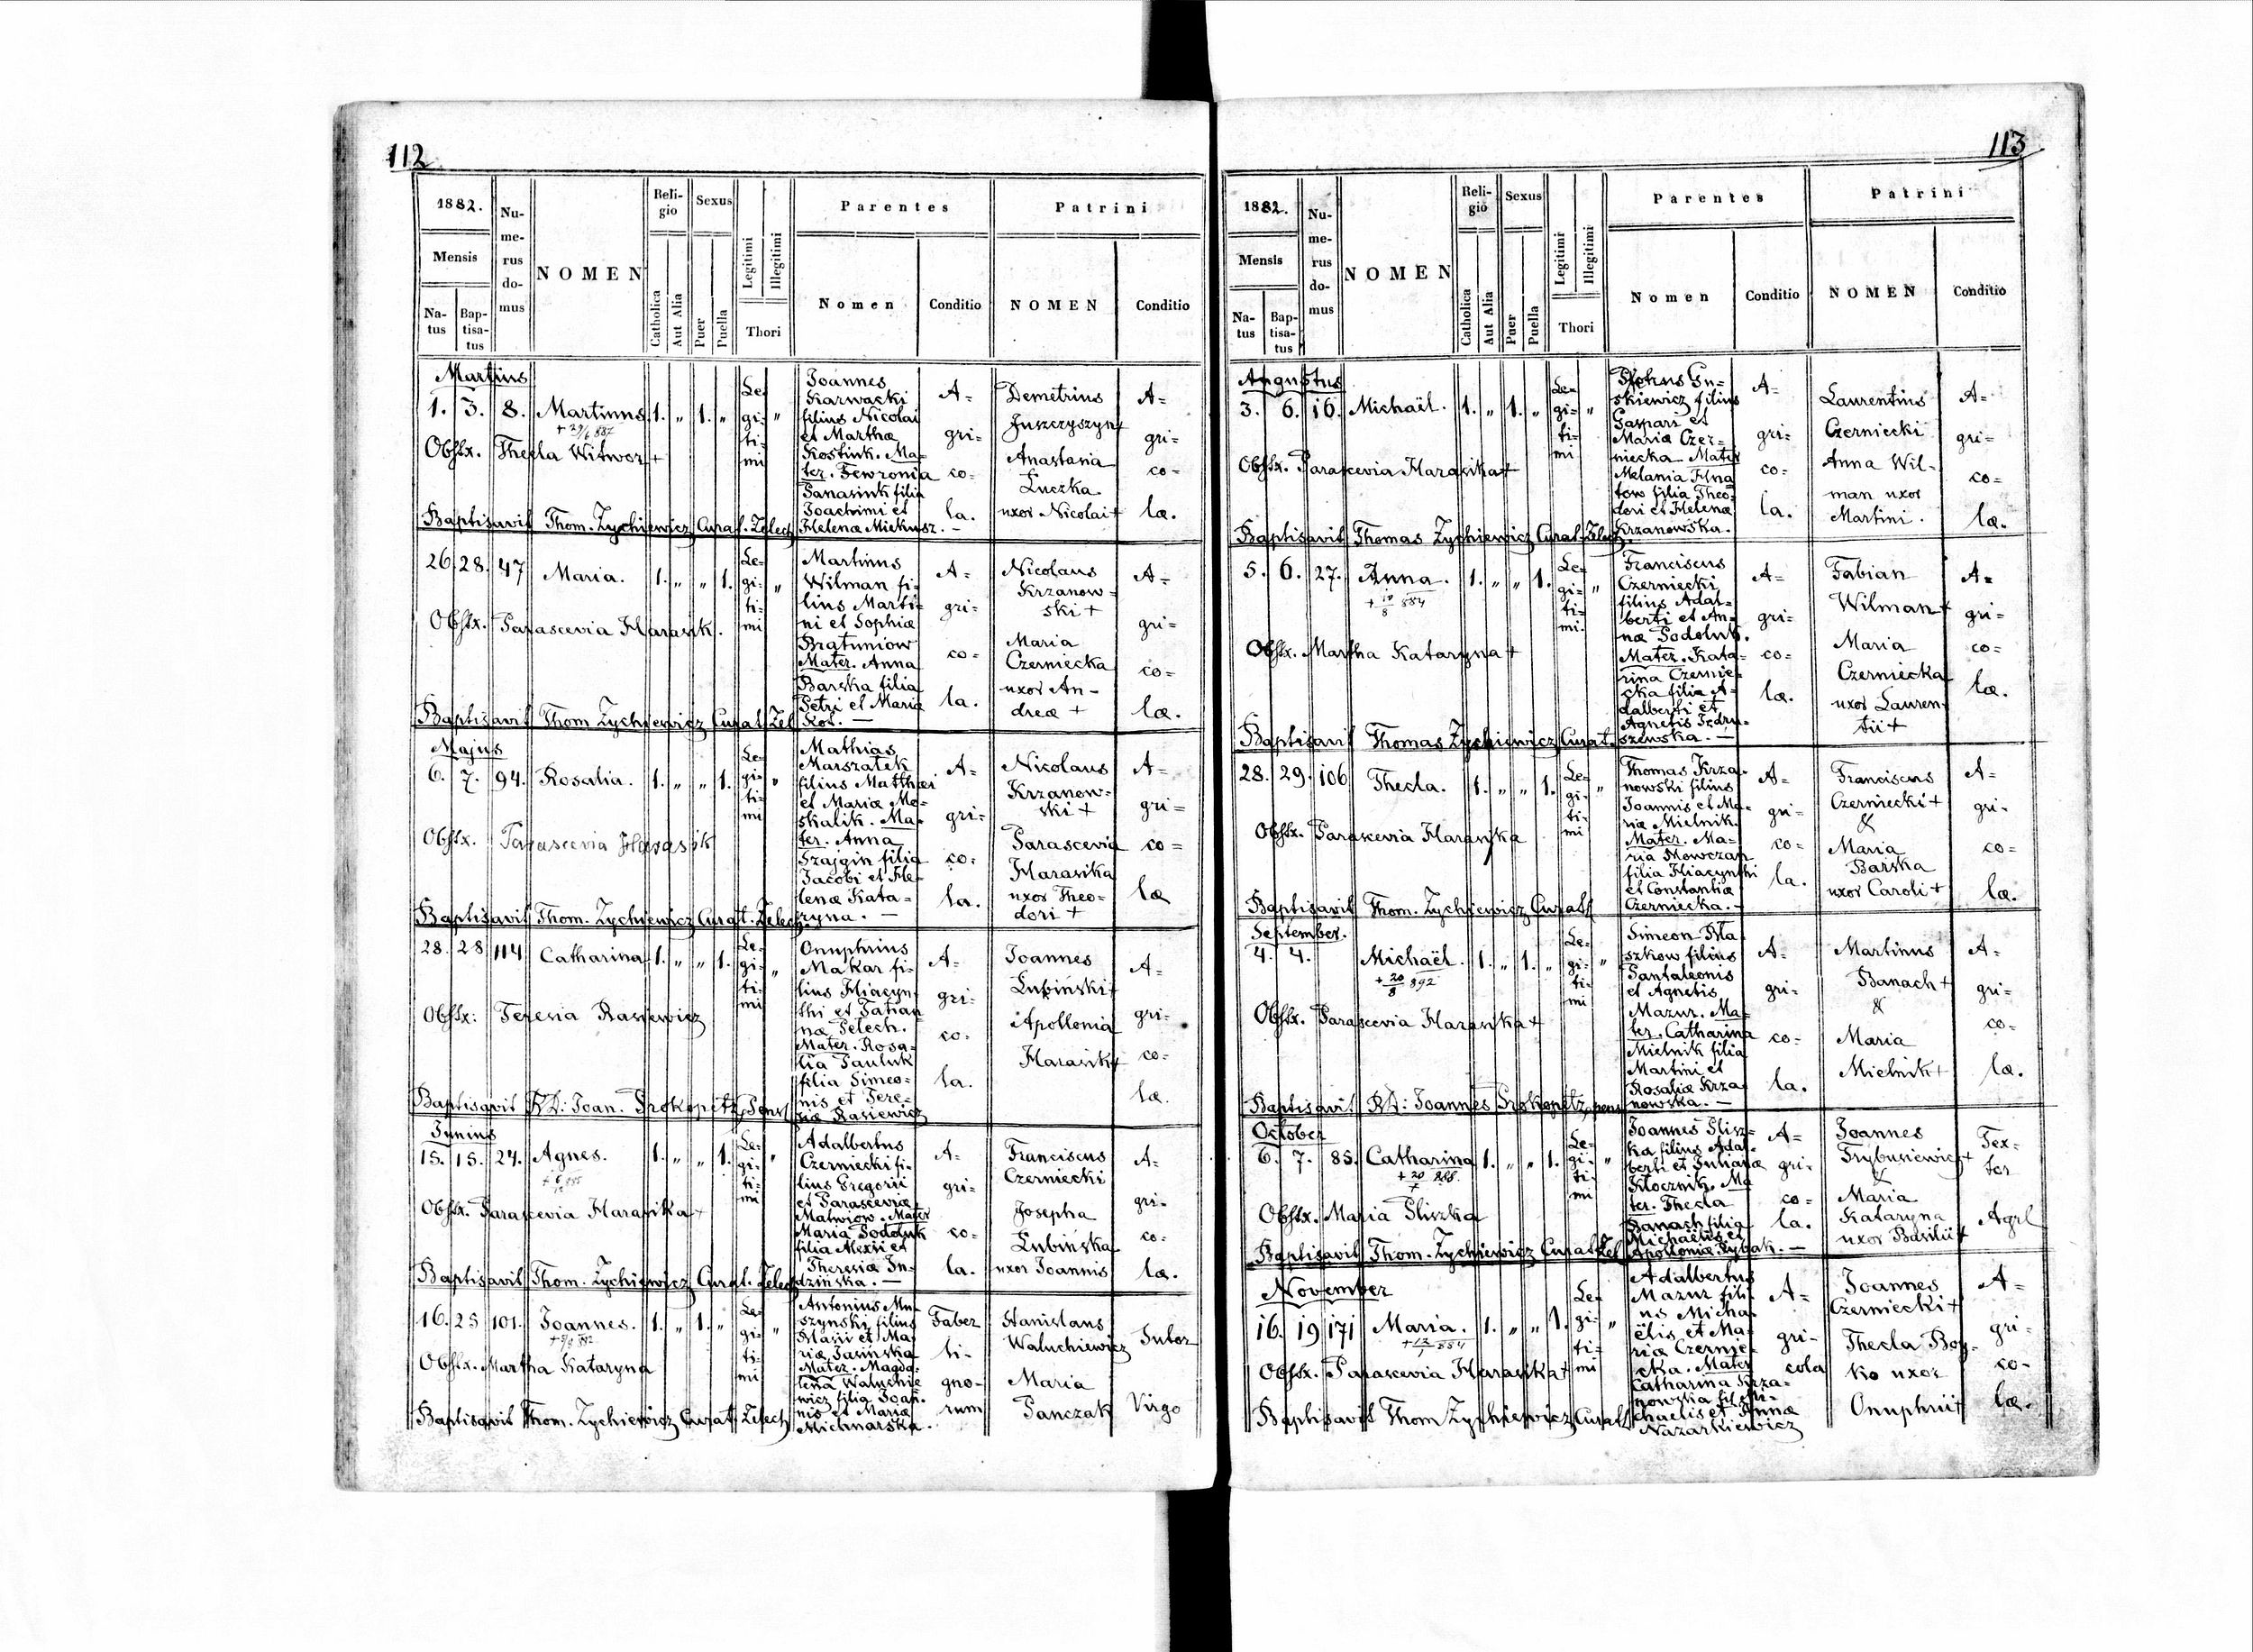 112
1882.
Mensis
Na-
tus
Bap-
tisa-
tus
Nu-
me-
rus
do-
mus
NOMEN
Reli-
gio
Catholica
Aut Alia
Sexus
Puer
Puella
Legitimi
Illegitimi
Thori
Parentes
Nomen
Conditio
Patrini
NOMEN
Conditio
Martius
1. 3. 8. Martinus 1. „ 1. „
Le-
gi- „
ti-
mi
Obstx. Thecla Witwor +
Joannes
Karwacki
filius Nicolai
et Marthæ
Kostiuk. Ma-
ter. Fewronia
Panasiuk filia
Joachimi et
Helenæ Miekusz. —
A=
gri=
co=
la.
Demetrius
Juszczyszyn +
Anastasia
Łuczka
uxor Nicolai +
A=
gri=
co=
læ.
Baptisavit Thom. Zychiewicz Curat. Zelech
26 28. 47 Maria. 1. „ „ 1.
Le-
gi- „
ti=
mi
Obstx. Parascevia Harasik.
Martinus
Wilman fi-
lius Marti-
ni et Sophiæ
Bratuniow
Mater. Anna
Barska filia
Petri et Mariæ
Kot. —
A=
gri=
co=
la.
Nicolaus
Krzanow-
ski +
Maria
Czerniecka
uxor An-
dreæ +
A=
gri=
co=
læ.
Baptisavit Thom Zychiewicz Curat Zel
Majus
6. 7. 94. Rosalia. 1. „ „ 1.
Le-
gi- „
ti-
mi
Obstx. Parascevia Harasik
Mathias
Marszałek
filius Matthæi
et Mariæ Mo-
skalik. Ma-
ter. Anna
Szajgin filia
Jacobi et He-
lenæ Kata-
ryna. —
A=
gri=
co=
la.
Nicolaus
Krzanow-
ski +
Parascevia
Harasika
uxor Theo-
dori +
A=
gri=
co=
læ
Baptisavit Thom. Zychiewicz Curat. Zelech
28. 28 114 Catharina 1. „ „ 1.
Le-
gi- „
ti-
mi
Obstx: Teresia Rasiewicz
Onuphrius
Makar fi-
lius Hiacyn-
thi et Tatian-
næ Pelech.
Mater. Rosa-
lia Pauluk
filia Simeo-
nis et Tere-
siæ Rasiewicz
A=
gri=
co=
la.
Joannes
Łubiński +
Apollonia
Harasik +
A=
gri=
co=
læ.
Baptisavit RD: Joan. Prokopitz, Pens.
Junius
15. 15. 24. Agnes. 1. „ „ 1.
Le-
gi- „
ti-
mi
Obstx. Parascevia Harasika +
Adalbertus
Czerniecki fi-
lius Gregorii
et Parasceviæ
Matwiow. Mater
Maria Podoluk
filia Alexii et
Theresiæ Ju-
dzińska. —
A=
gri=
co=
la.
Franciscus
Czerniecki
Josepha
Łubińska
uxor Joannis
A=
gri=
co=
læ.
Baptisavit Thom. Zychiewicz Curat. Zelech
16. 25 101. Joannes. 1. „ 1. „
Le-
gi- „
ti-
mi
Obstx. Martha Kataryna
Antonius Mu-
szynski filius
et Ma-
riæ Jasińska
Mater. Magda-
lena Waluchie
wicz filia Joan-
nis et Mariæ
Michnarska.
Faber
li-
gno-
rum
Stanislaus
Waluchiewicz
Maria
Panczak
Sutor
Virgo
Baptisavit Thom. Zychiewicz Curat. Zelech
113
1882.
Mensis
Na-
tus
Bap-
tisa-
tus
Nu-
me-
rus
do-
mus
NOMEN
Reli-
gio
Catholica
Aut Alia
Sexus
Puer
Puella
Legitimi
Illegitimi
Thori
Parentes
Nomen
Conditio
Patrini
NOMEN
Conditio
Augustus
3. 6. 16. Michaël. 1. „ 1. „
Le-
gi- „
ti-
mi
Obstx. Parascevia Harasika +
skiewicz filius
Gaspari et
Mariæ Czer-
niecka. Mater
Melania Hna-
tow filia Theo-
dori et Helenæ
Krzanowska.
A=
gri=
co=
la.
Laurentius
Czerniecki
Anna Wil-
man uxor
Martini.
A=
gri=
co=
læ.
Baptisavit Thomas Zychiewicz Curat. Zelech.
5. 6. 27. Anna. 1. „ „ 1.
+ 10/8 884
Le-
gi- „
ti-
mi.
Obstx. Martha Kataryna +
Franciscus
Czerniecki
filius Adal-
berti et An-
næ Podoluk.
Mater. Kata-
rina Czernie-
cka filia A-
dalberti et
Agnetis Jedru-
szewska. —
A=
gri=
co=
læ.
Fabian
Wilman +
Maria
Czerniecka
uxor Lauren-
tii +
A=
gri=
co=
læ.
Baptisavit Thomas Zychiewicz Curat.
28. 29. 106 Thecla. 1. „ „ 1.
Le-
gi- „
ti-
mi
Obstx. Parascevia Harasika
Thomas Krza-
nowski filius
Joannis et Ma-
riæ Mielnik.
Mater. Ma-
ria Mowczan
filia Hiacynthi
et Constantiæ
Czerniecka. —
A=
gri=
co=
la.
Franciscus
Czerniecki +
&
Maria
Barska
uxor Caroli +
A=
gri-
co=
læ.
Baptisavit Thom. Zychiewicz Curat
September.
4. 4. Michaël. 1. „ 1. „
+ 20/8 892
Le-
gi- „
ti-
mi
Obstx. Parascevia Harasika +
szkow filius
Pantaleonis
et Agnetis
Mazur. Ma-
ter. Catharina
Mielnik filia
Martini et
Rosaliæ Krza-
nowska. —
A=
gri=
co=
la.
Martinus
Banach +
&
Maria
Mielnik +
A=
gri=
co=
læ.
Baptisavit RD: Joannes Prokopitz, pens
October
6. 7. 85. Catharina 1. „ „ 1.
Le-
gi- „
ti-
mi
Obstx. Maria Pliszka
Joannes Plisz-
ka filius Adal-
berti et Julianæ
Klocznik. Ma-
ter. Thecla
Banach filia
Michaëlis et
Apolloniæ Rybak. —
A=
gri-
co=
la.
Joannes
Trybusiewicz +
&
Maria
Kataryna
uxor Basilii +
Tex-
tor
Agrl
Baptisavit Thom. Zychiewicz Curat. Zel
November
16. 19 171 Maria. 1. „ „ 1.
Le-
gi- „
ti-
mi
Obstx. Parascevia Harasika +
Adalbertus
Mazur fili-
us Micha-
ëlis et Ma-
riæ Czernie-
cka. Mater
Catharina Krza-
nowska fil. Mi-
chaelis et Annæ
Nazarkiewicz
A=
gri-
cola
Joannes
Czerniecki +
Thecla Boy-
ko uxor
Onuphrii +
A=
gri-
co-
læ.
Baptisavit Thom Zychiewicz Curat